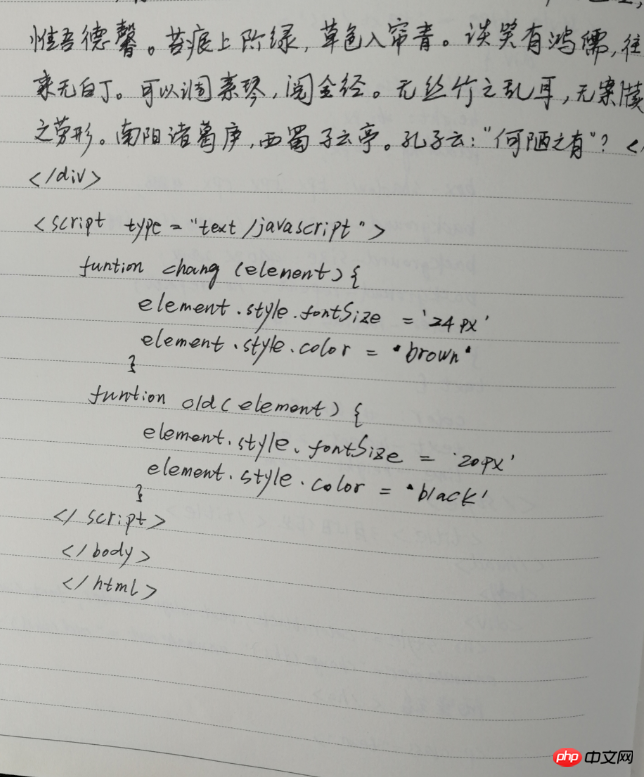 惟吾德馨。苔痕上阶绿，草色入帘青。谈笑有鸿儒，往
来无白丁。可以调素琴，阅金经。无丝竹之乱耳，无案牍
之劳形。南阳诸葛庐，西蜀子云亭。孔子云："何陋之有"？</
</div>
<script type="text/javascript">
funtion chang(element){
element.style.fontSize = '24px'
element.style.color = 'brown'
}
funtion old(element){
element.style.fontSize = '20px'
element.style.color = 'black'
}
</script>
</body>
</html>
php 中文网